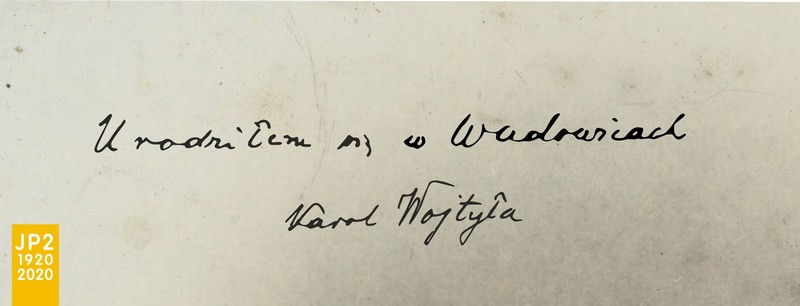 Urodziłem się w Wadowicach
Karol Wojtyła
JP2
1920
2020